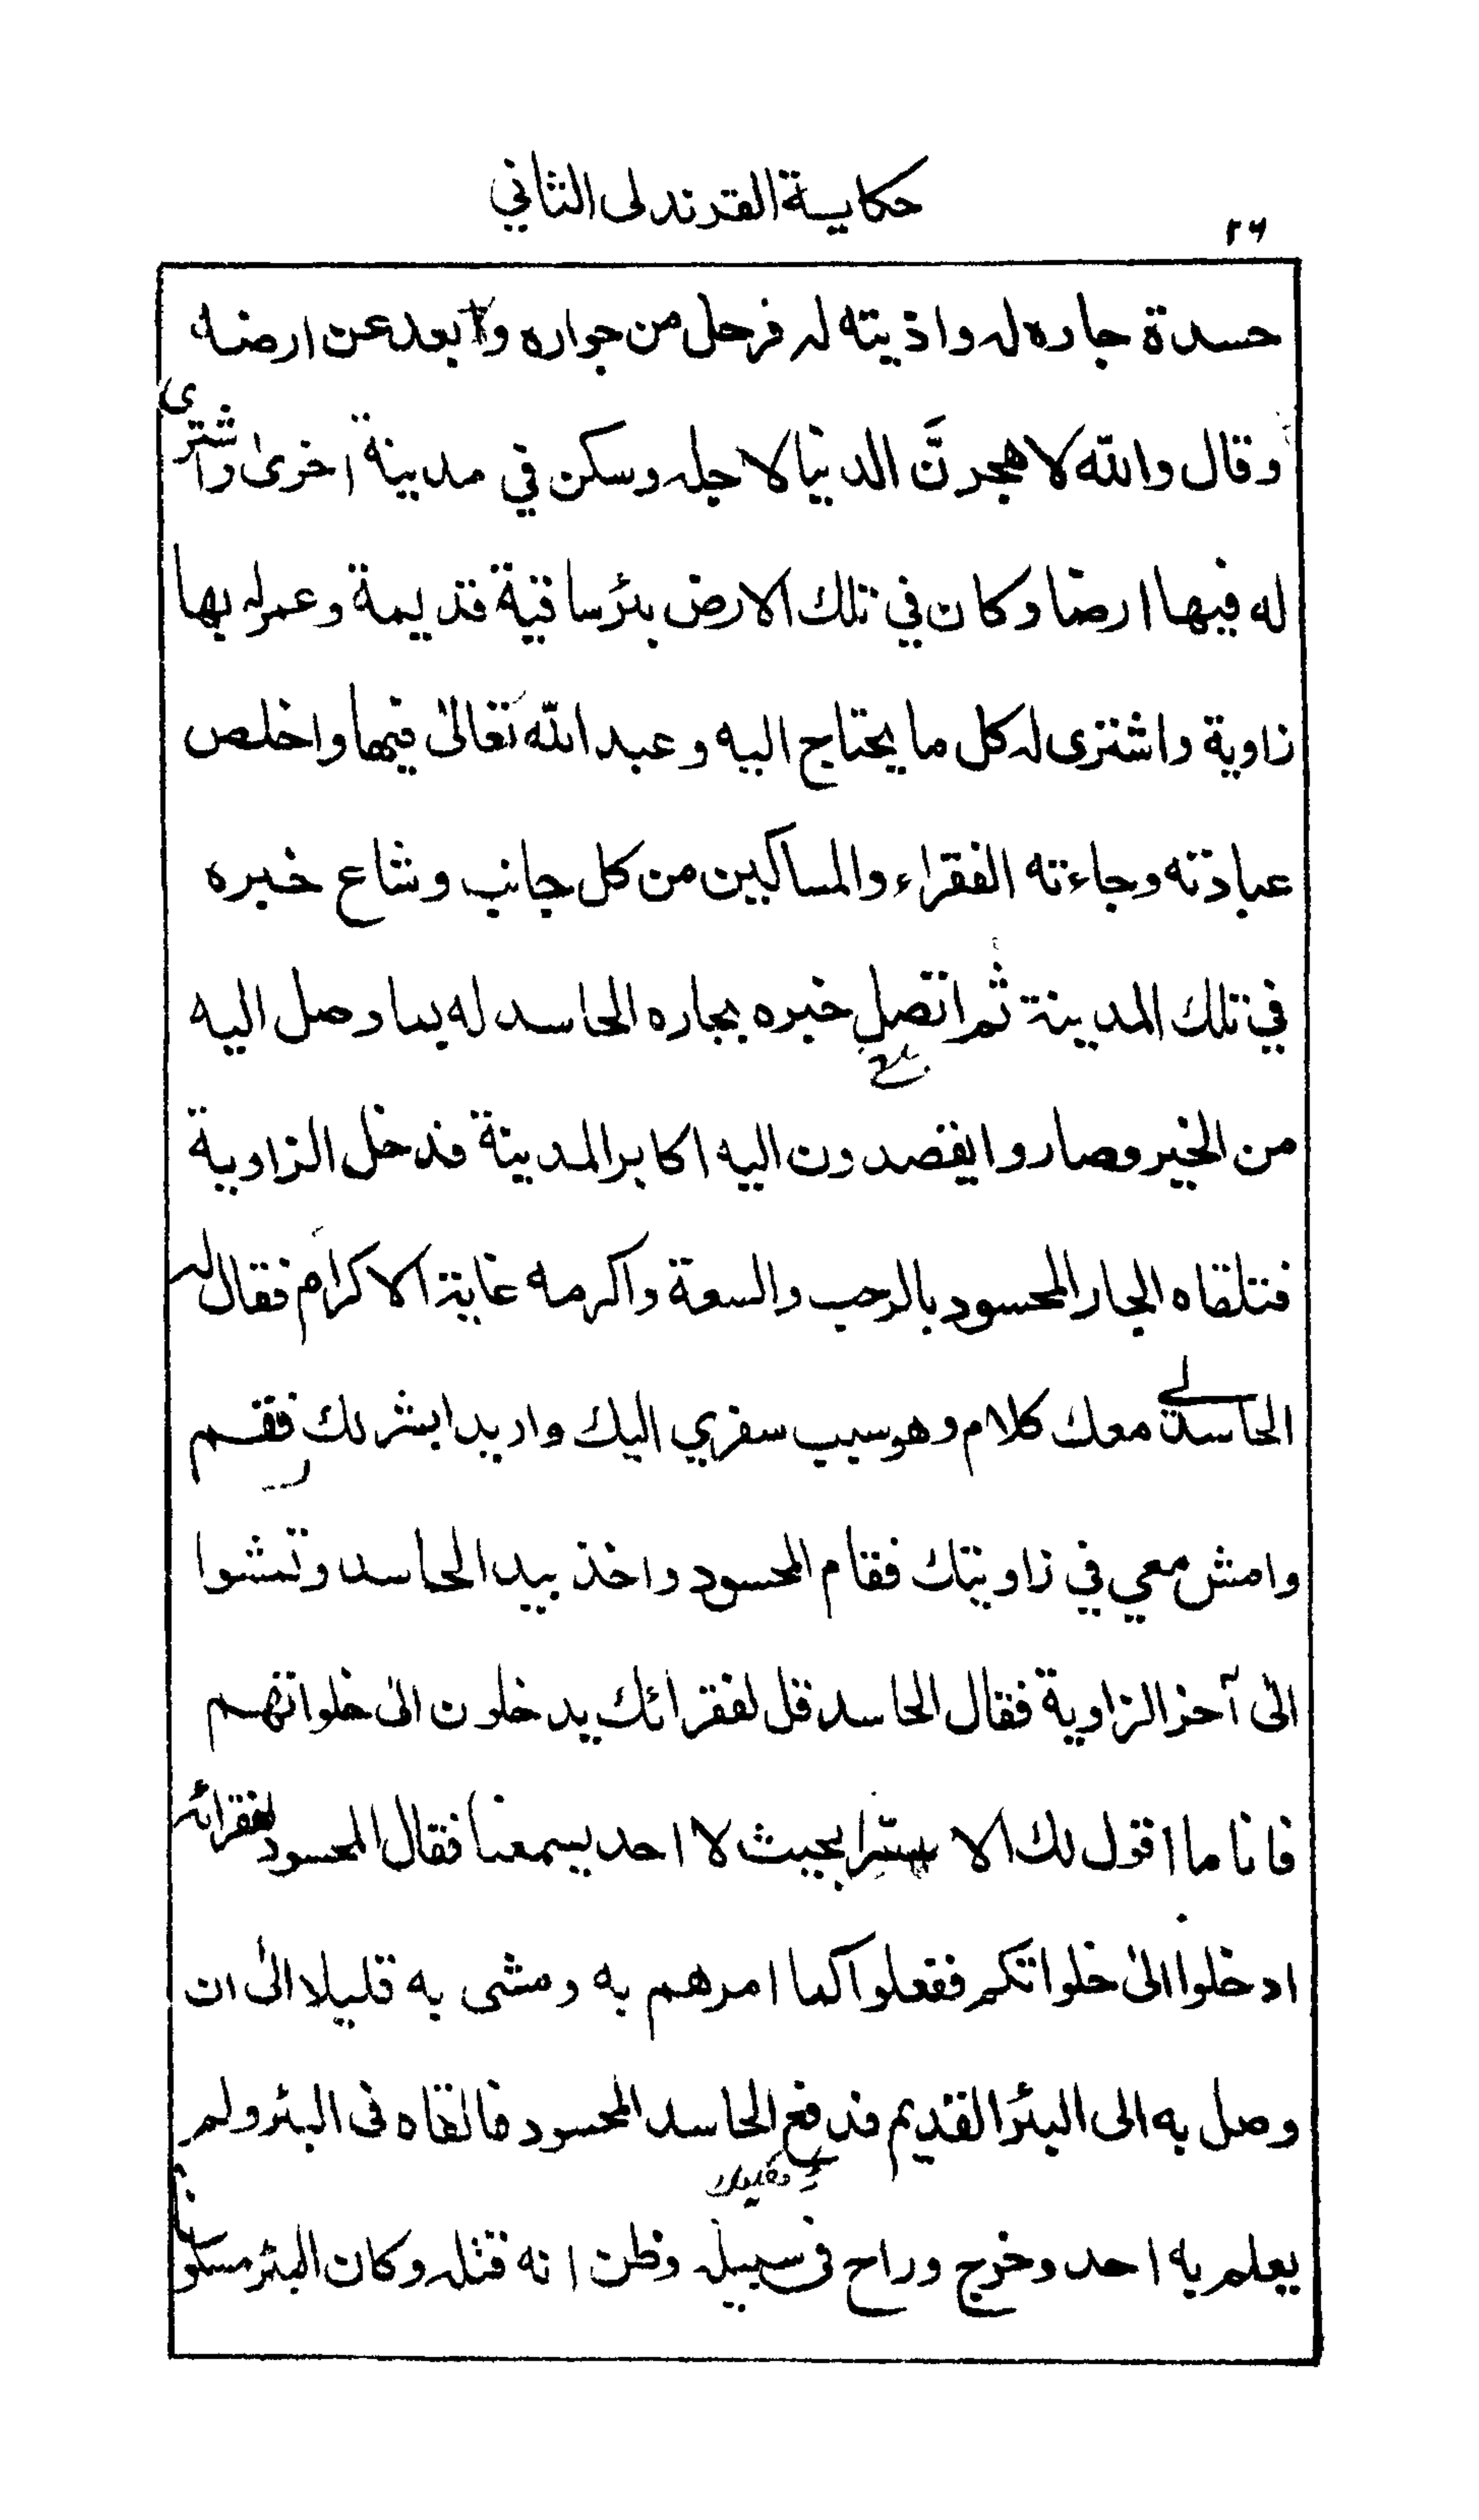 حكاية القرندلى الثاني
٢٦
حسدة جاره له واذيته له فرحل من جواره وابعد عن ارضه
وقال والله لاهجرنَّ الدنيا لاجله وسكن في مدينة اخرى واشترى
له فيها ارضا وكان في تلك الارض بئر ساقية قديمة وعمر له بها
زاوية واشترى له كل ما يحتاج اليه وعبد الله تعالىٰ فيها واخلص
عبادته وجاءته الفقراء والمساكين من كل جانب وشاع خبره
في تلك المدينة ثم اتصل خبره بجاره الحاسد له بما وصل اليه
من الخير وصاروا يقصدون اليه اكابر المدينة فدخل الزاوية
فتلقاه الجار المحسود بالرحب والسعة واكرمه غاية الاكرام فقال له
الحاسد لي معك كلام وهو سبب سفري اليك واريد ابشرك فقم
وامش معي في زاويتك فقام المحسود واخذ بيد الحاسد وتمشوا
الىٰ آخر الزاوية فقال الحاسد قل لفقرائك يدخلون الىٰ خلواتهم
فانا ما اقول لك الا سرّا بحيث لا احد يسمعنا فقال المحسود لفقرائه
ادخلوا الىٰ خلواتكم ففعلوا كما امرهم به ومشى به قليلا الىٰ ان
وصل به الى البئر القديم فدفع الحاسد المحسود فالقاه فى البئر ولم
يعلم به احد وخرج وراح فى سبيله وظن انه قتله وكان البئر مسكونا